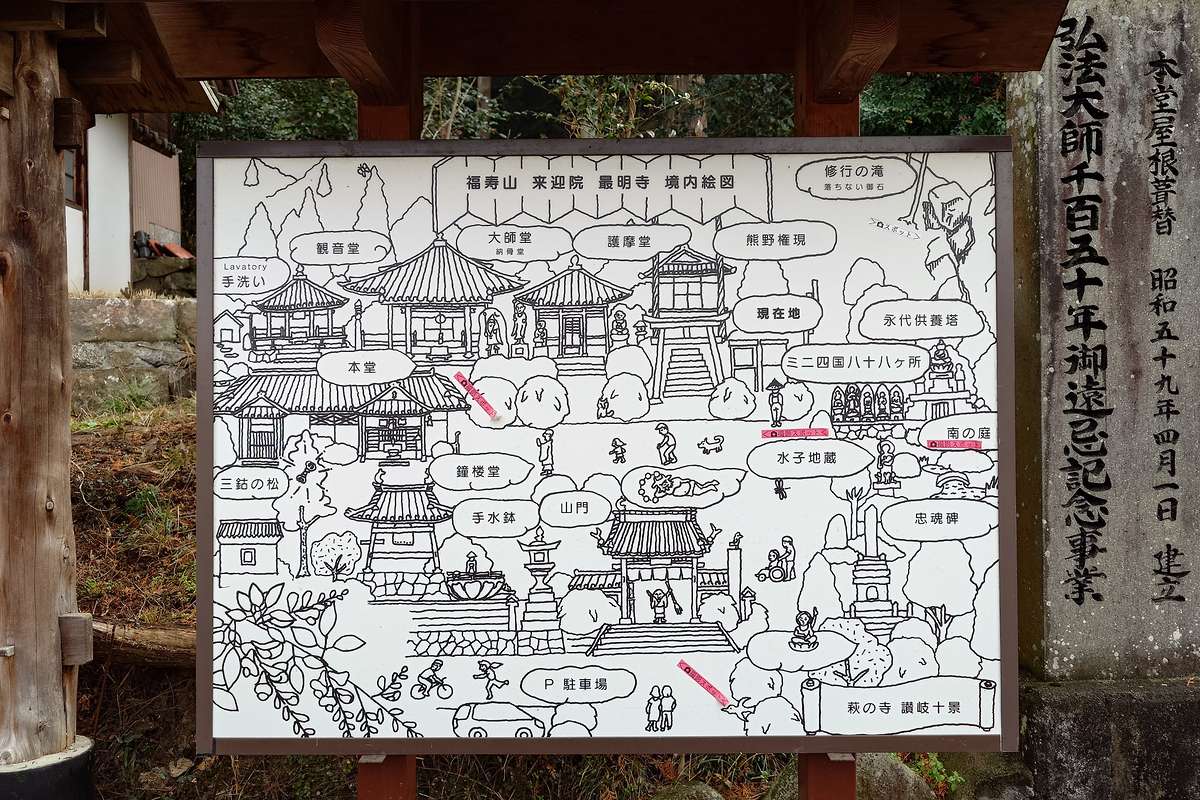 福寿山 来迎院 最明寺 境内絵図
修行の滝
落ちない御石
観音堂
大師堂
納骨堂
護摩堂
熊野権現
Lavatory
手洗い
現在地
永代供養塔
本堂
ミニ四国八十八ヶ所
南の庭
水子地蔵
鐘楼堂
三鈷の松
手水鉢
山門
忠魂碑
P 駐車場
萩の寺 讃岐十景
本堂屋根葺替 昭和五十九年四月一日 建立
弘法大師千百五十年御遠忌記念事業